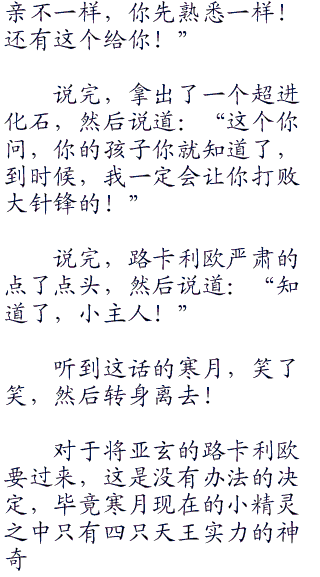 亲不一样，你先熟悉一样！
还有这个给你！”
说完，拿出了一个超进
化石，然后说道：“这个你
问，你的孩子你就知道了，
到时候，我一定会让你打败
大针锋的！”
说完，路卡利欧严肃的
点了点头，然后说道：“知
道了，小主人！”
听到这话的寒月，笑了
笑，然后转身离去！
对于将亚玄的路卡利欧
要过来，这是没有办法的决
定，毕竟寒月现在的小精灵
之中只有四只天王实力的神
奇